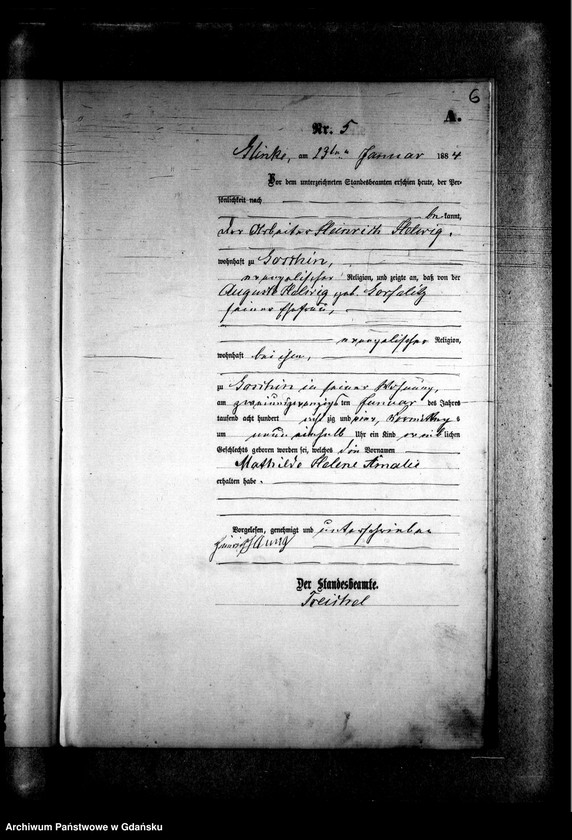 6
A.
Nr. 5
Glinke, am 23ten Januar 1884
Vor dem unterzeichneten Standesbeamten erschien heute, der Per-
sönlichkeit nach
be kannt,
der Arbeiter Heinrich Helwig,
wohnhaft zu
evangelischer Religion, und zeigte an, daß von der
Auguste Helwig geb.
seiner Ehefrau,
evangelischer Religion,
wohnhaft bei ihm,
zu in seiner Wohnung,
am zweiundzwanzigsten Januar des Jahres
tausend acht hundert acht zig und vier, Vormittag s
um neun einhalb Uhr ein Kind weib lichen
Geschlechts geboren worden sei, welches den Vornamen
Mathilde Helene Amalie
erhalten habe.
Vorgelesen, genehmigt und unterschrieben
Heinrich
Der Standesbeamte.
Archiwum Państwowe w Gdańsku